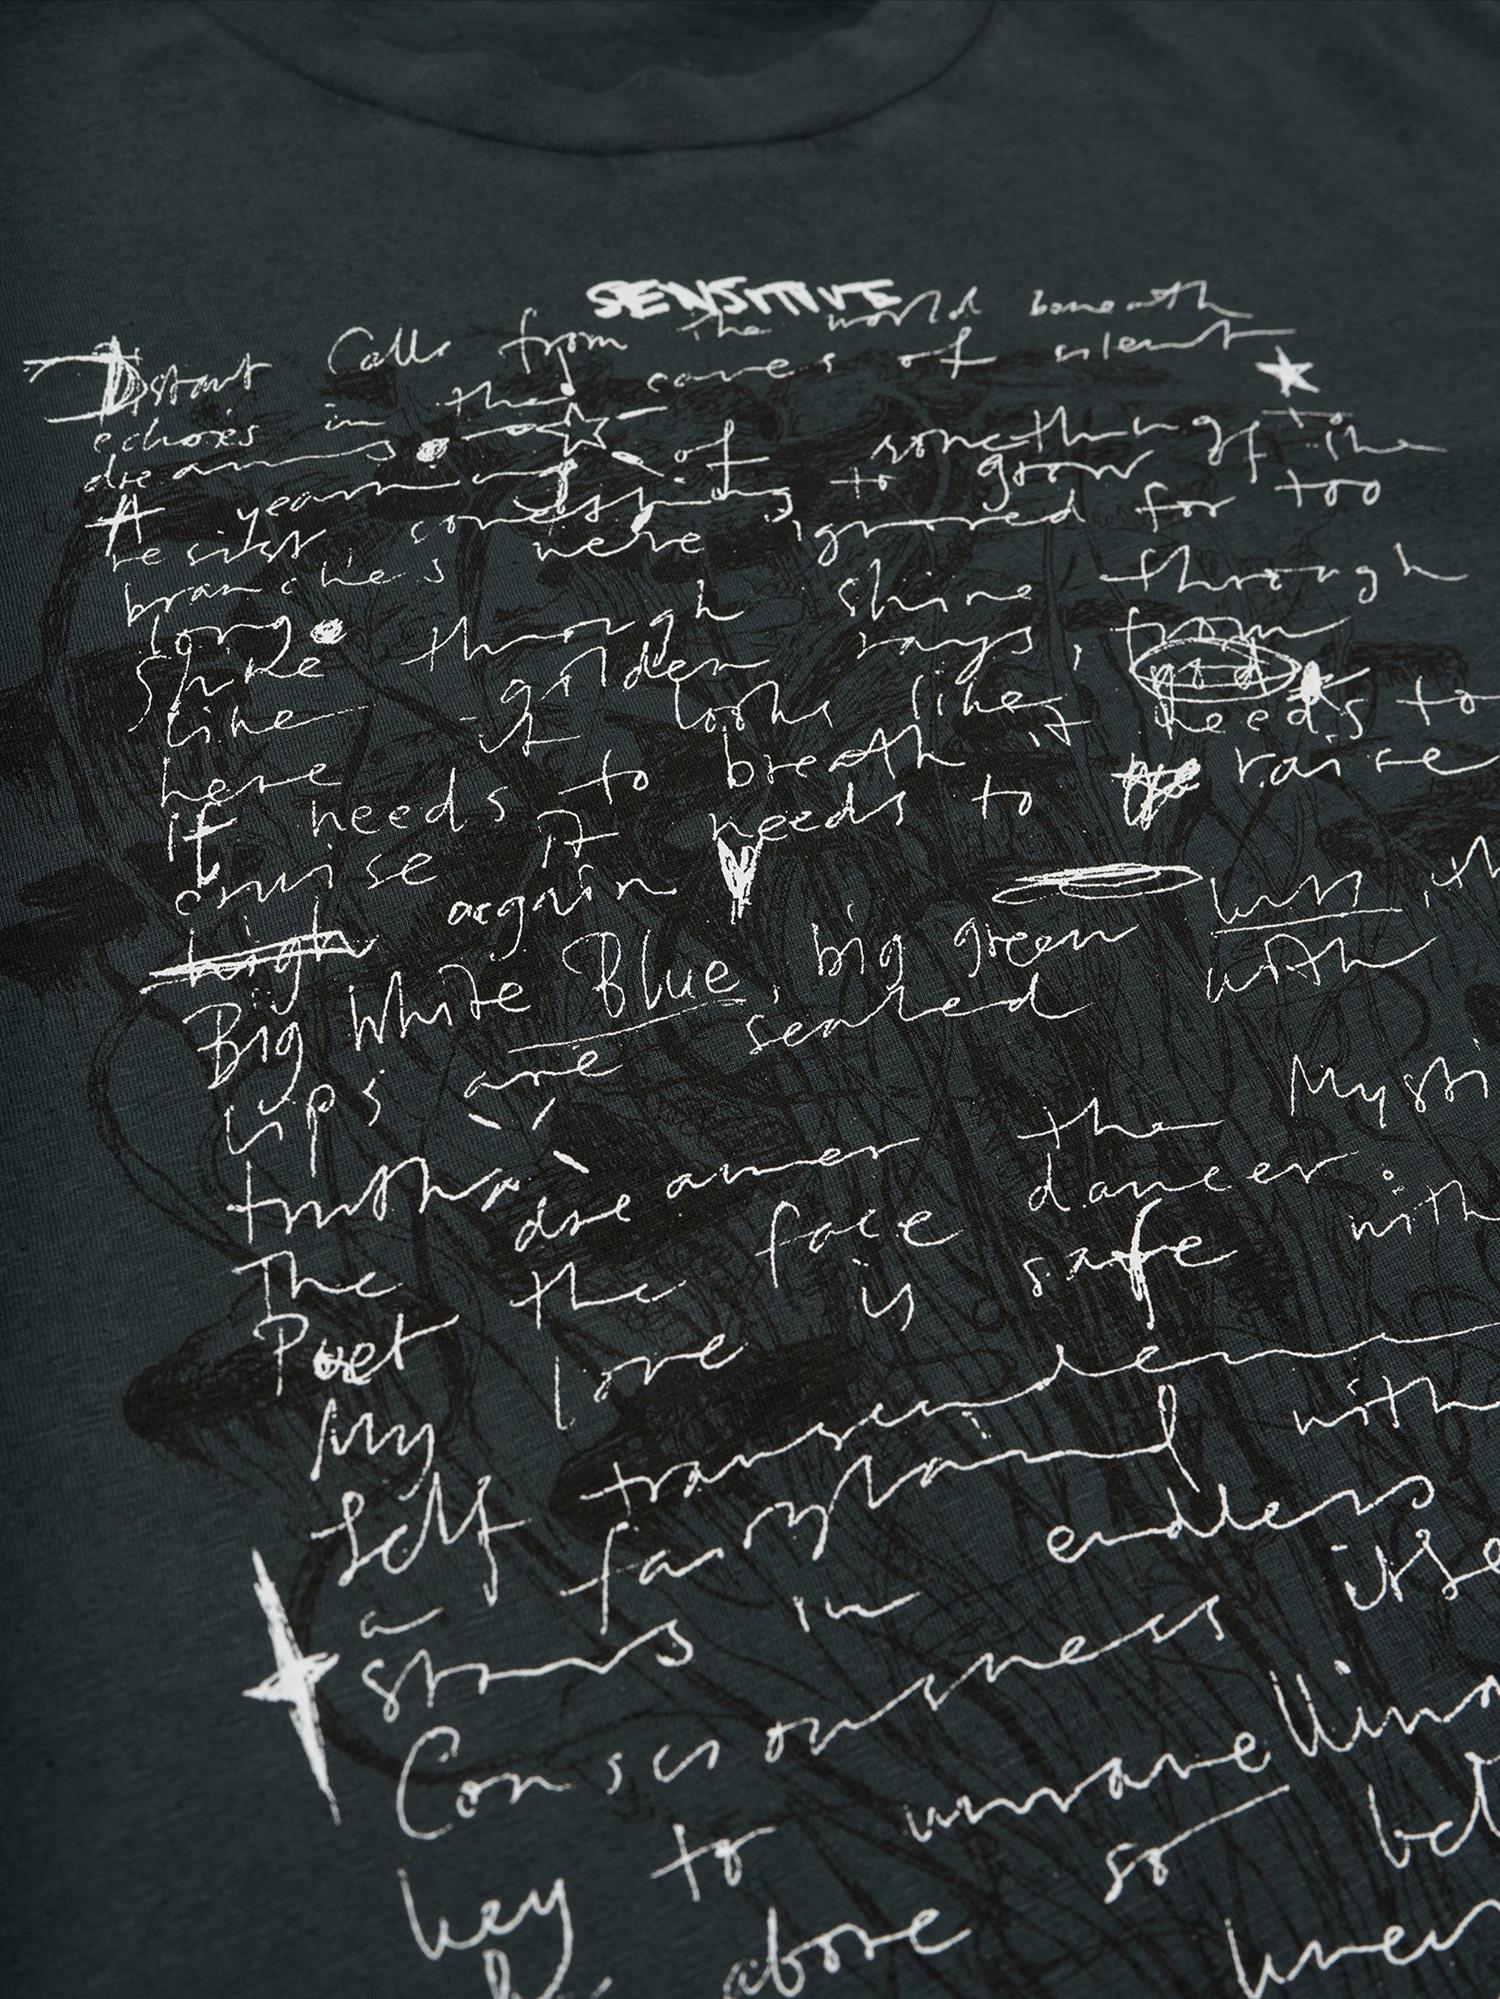 SENSITIVE
Distant Calls from the world beneath
echoes in the caves of silent
dreams
A yearning of something to
resist, something to grow of the
branches were ignored for too
long
shine through shine through
like golden rays, from
here it looks like god
It needs to breath it needs to
omise It needs to raise
high again
Big White Blue, big green
lips are sealed with
truth
The dreamer the Mysti
Poet the face dancer
My love is safe with
Self transcende
a fairyland with
stars in endless
Consciousness itse
key to unravelling
above so bel
knew